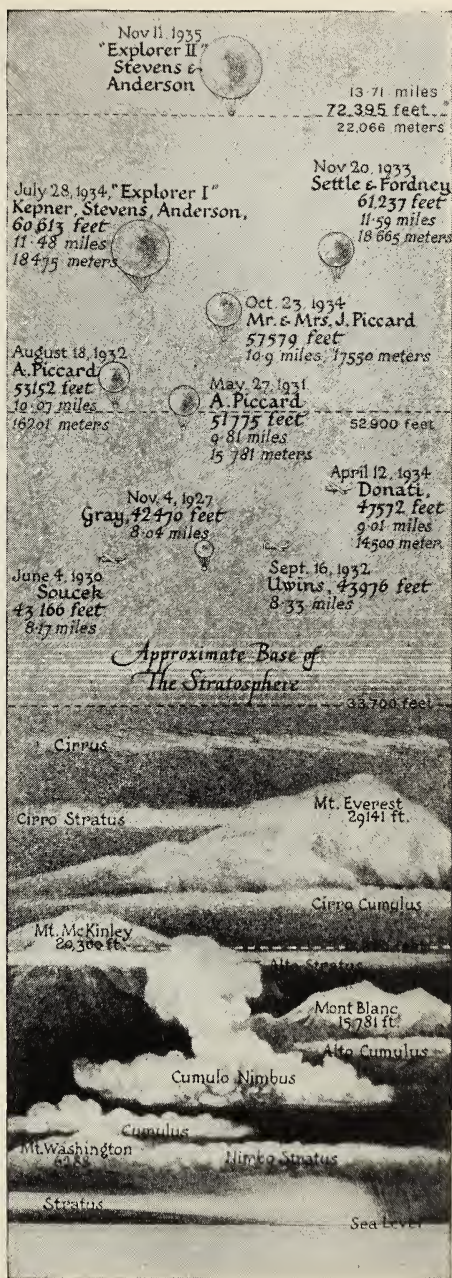 Nov 11, 1935
"Explorer II"
Stevens &
Anderson
13.71 miles
72,395 feet
22,066 meters
Nov 20, 1933
Settle & Fordney
61,237 feet
11.59 miles
18 665 meters
July 28, 1934, "Explorer I"
Kepner, Stevens, Anderson,
60,613 feet
11.48 miles
18475 meters
Oct. 23, 1934
Mr. & Mrs. J. Piccard
57579 feet
10.9 miles, 17550 meters
August 18, 1932
A. Piccard
53152 feet
10.07 miles
16201 meters
May. 27, 1931
A. Piccard
51775 feet
9.81 miles
15 781 meters
52,800 feet
April 12, 1934
Donati,
47572 feet
9.01 miles
14500 meter
Nov. 4, 1927
Gray, 42470 feet
8.04 miles
Sept. 16, 1932
Uwins, 43976 feet
8.33 miles
June 4, 1930
Soucek
43 166 feet
8.17 miles
Approximate Base of
The Stratosphere
33,700 feet
Cirrus
Mt. Everest
29141 ft.
Cirro Stratus
Cirro Cumulus
Mt. McKinley
20,300 ft.
Alto Stratus
Mont Blanc
15,781 ft.
Alto Cumulus
Cumulo Nimbus
Cumulus
Mt. Washington
6288
Nimbo Stratus
Stratus
Sea Level